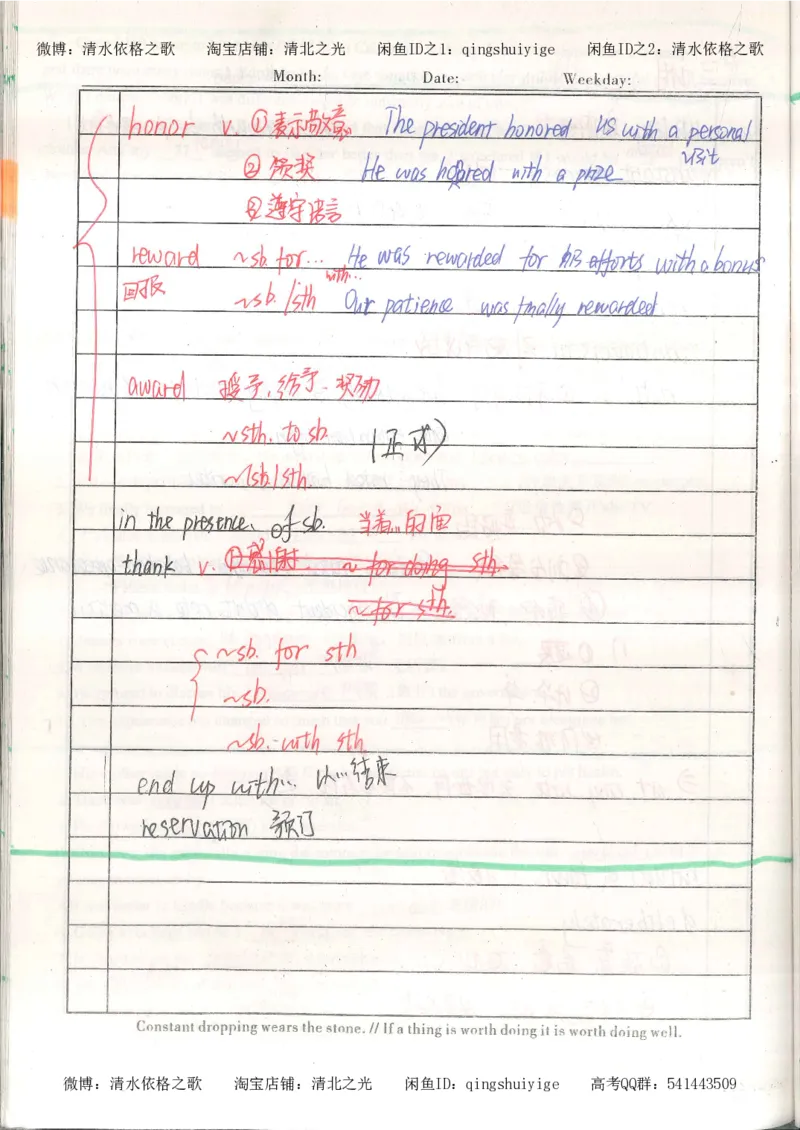 微博：清水依格之歌 淘宝店铺：清北之光 闲鱼ID之1：qingshuiyige 闲鱼ID之2：清水依格之歌
Month: Date: Weekday:
honor v. ①表示敬意 The president honored us with a personal visit
②颁奖 He was honored with a prize
③遵守诺言
reward ~sb. for... He was rewarded for his efforts with a bonus
with...
回报 ~sb./sth Our patience was finally rewarded
award 授予，给予、奖励
~sth. to sb. (正式)
~(sb.)sth.
in the presence of sb. 当着...的面
thank v. ①感谢 ~ for doing sth.
~ for sth.
~sb. for sth
~sb.
~sb. with sth
end up with... 以...结束
reservation 预订
Constant dropping wears the stone. // If a thing is worth doing it is worth doing well.
微博：清水依格之歌 淘宝店铺：清北之光 闲鱼ID：qingshuiyige 高考QQ群：541443509